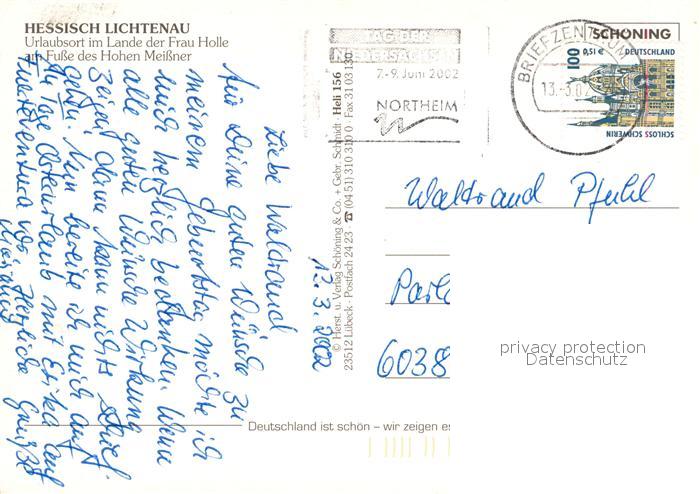 HESSISCH LICHTENAU
Urlaubsort im Lande der Frau Holle
am Fuße des Hohen Meißner
TAG DER
NIEDERSACHSEN
7.-9. Juni 2002
NORTHEIM
BRIEFZENTRUM
13.-3.02
SCHÖNING
100
0,51 €
DEUTSCHLAND
SCHLOSS SCHWERIN
12.3.2002
Liebe Waltraud
für Deine guten Wünsche zu
meinem Geburtstag möchte ich
mich herzlich bedanken. Wenn
alle guten Wünsche Wirkung
zeigen dann kann nichts schief
gehen. Nun bereite ich mich auf
14 Tage Osterurlaub mit Erika auf
Fuerteventura vor. Herzliche Grüße
© Herst. u. Verlag Schöning & Co. + Gebr. Schmidt · Heli 156
23512 Lübeck · Postfach 24 23 · ☎ (04 51) 310 310 0 · Fax 31 03 130
Waltraud Pfuhl
Park
6038
privacy protection
Datenschutz
Deutschland ist schön – wir zeigen es